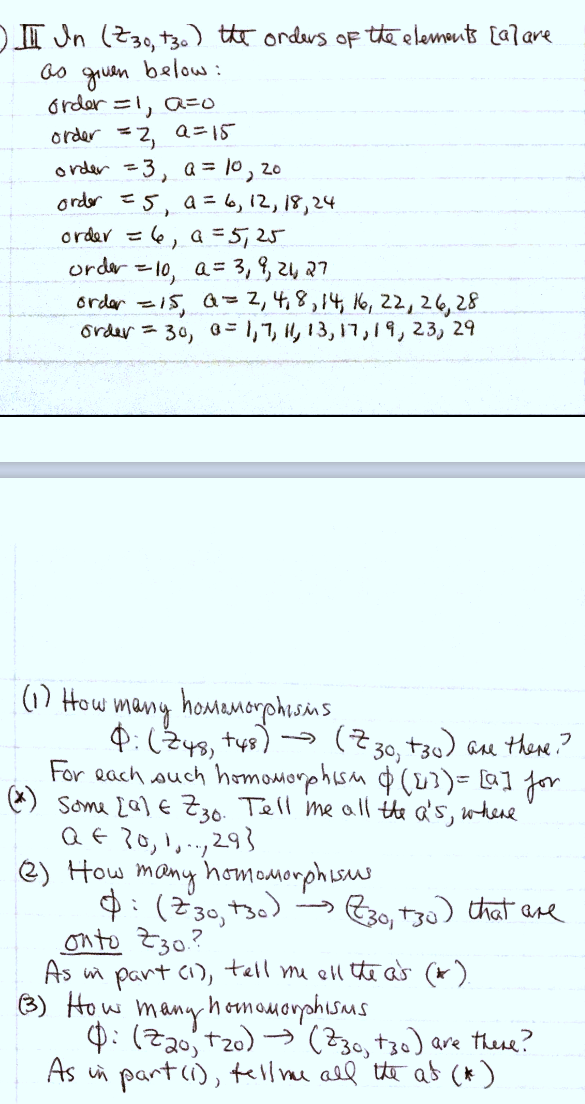 ) III In (Z30, +30) the orders of the elements [a] are
as given below:
order = 1, a=0
order = 2, a=15
order = 3, a = 10, 20
order = 5, a = 6, 12, 18, 24
order = 6, a = 5, 25
order = 10, a = 3, 9, 21, 27
order = 15, a = 2, 4, 8, 14, 16, 22, 26, 28
order = 30, a = 1, 7, 11, 13, 17, 19, 23, 29
(1) How many homomorphisms
Φ: (Z48, +48) → (Z30, +30) are there?
For each such homomorphism Φ([1]) = [a] for
(*) some [a] ∈ Z30. Tell me all the a's, where
a ∈ {0, 1, .., 29}
(2) How many homomorphisms
Φ: (Z30, +30) → (Z30, +30) that are
onto Z30?
As in part (1), tell me all the a's (*)
(3) How many homomorphisms
Φ: (Z20, +20) → (Z30, +30) are there?
As in part (1), tell me all the a's (*)